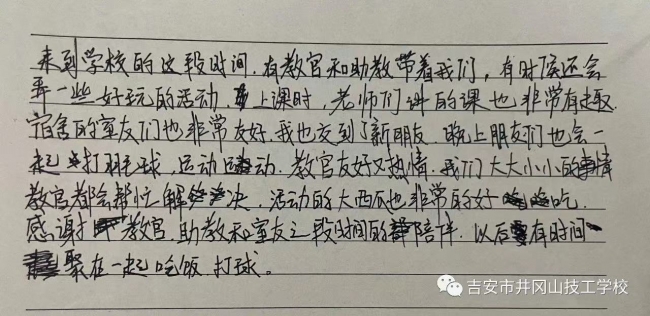 来到学校的这段时间，有教官和助教带着我们，有时候还会
弄一些好玩的活动，上课时，老师们讲的课也非常有趣
宿舍的室友们也非常友好，我也交到了新朋友，晚上朋友们也会一
起打羽毛球，运动运动，教官友好又热情，我们大大小小的事情
教官都会帮忙解决，活动的大西瓜也非常的好吃，
感谢教官，助教和室友这段时间的陪伴，以后有时间
聚在一起吃饭 打球。
吉安市井冈山技工学校